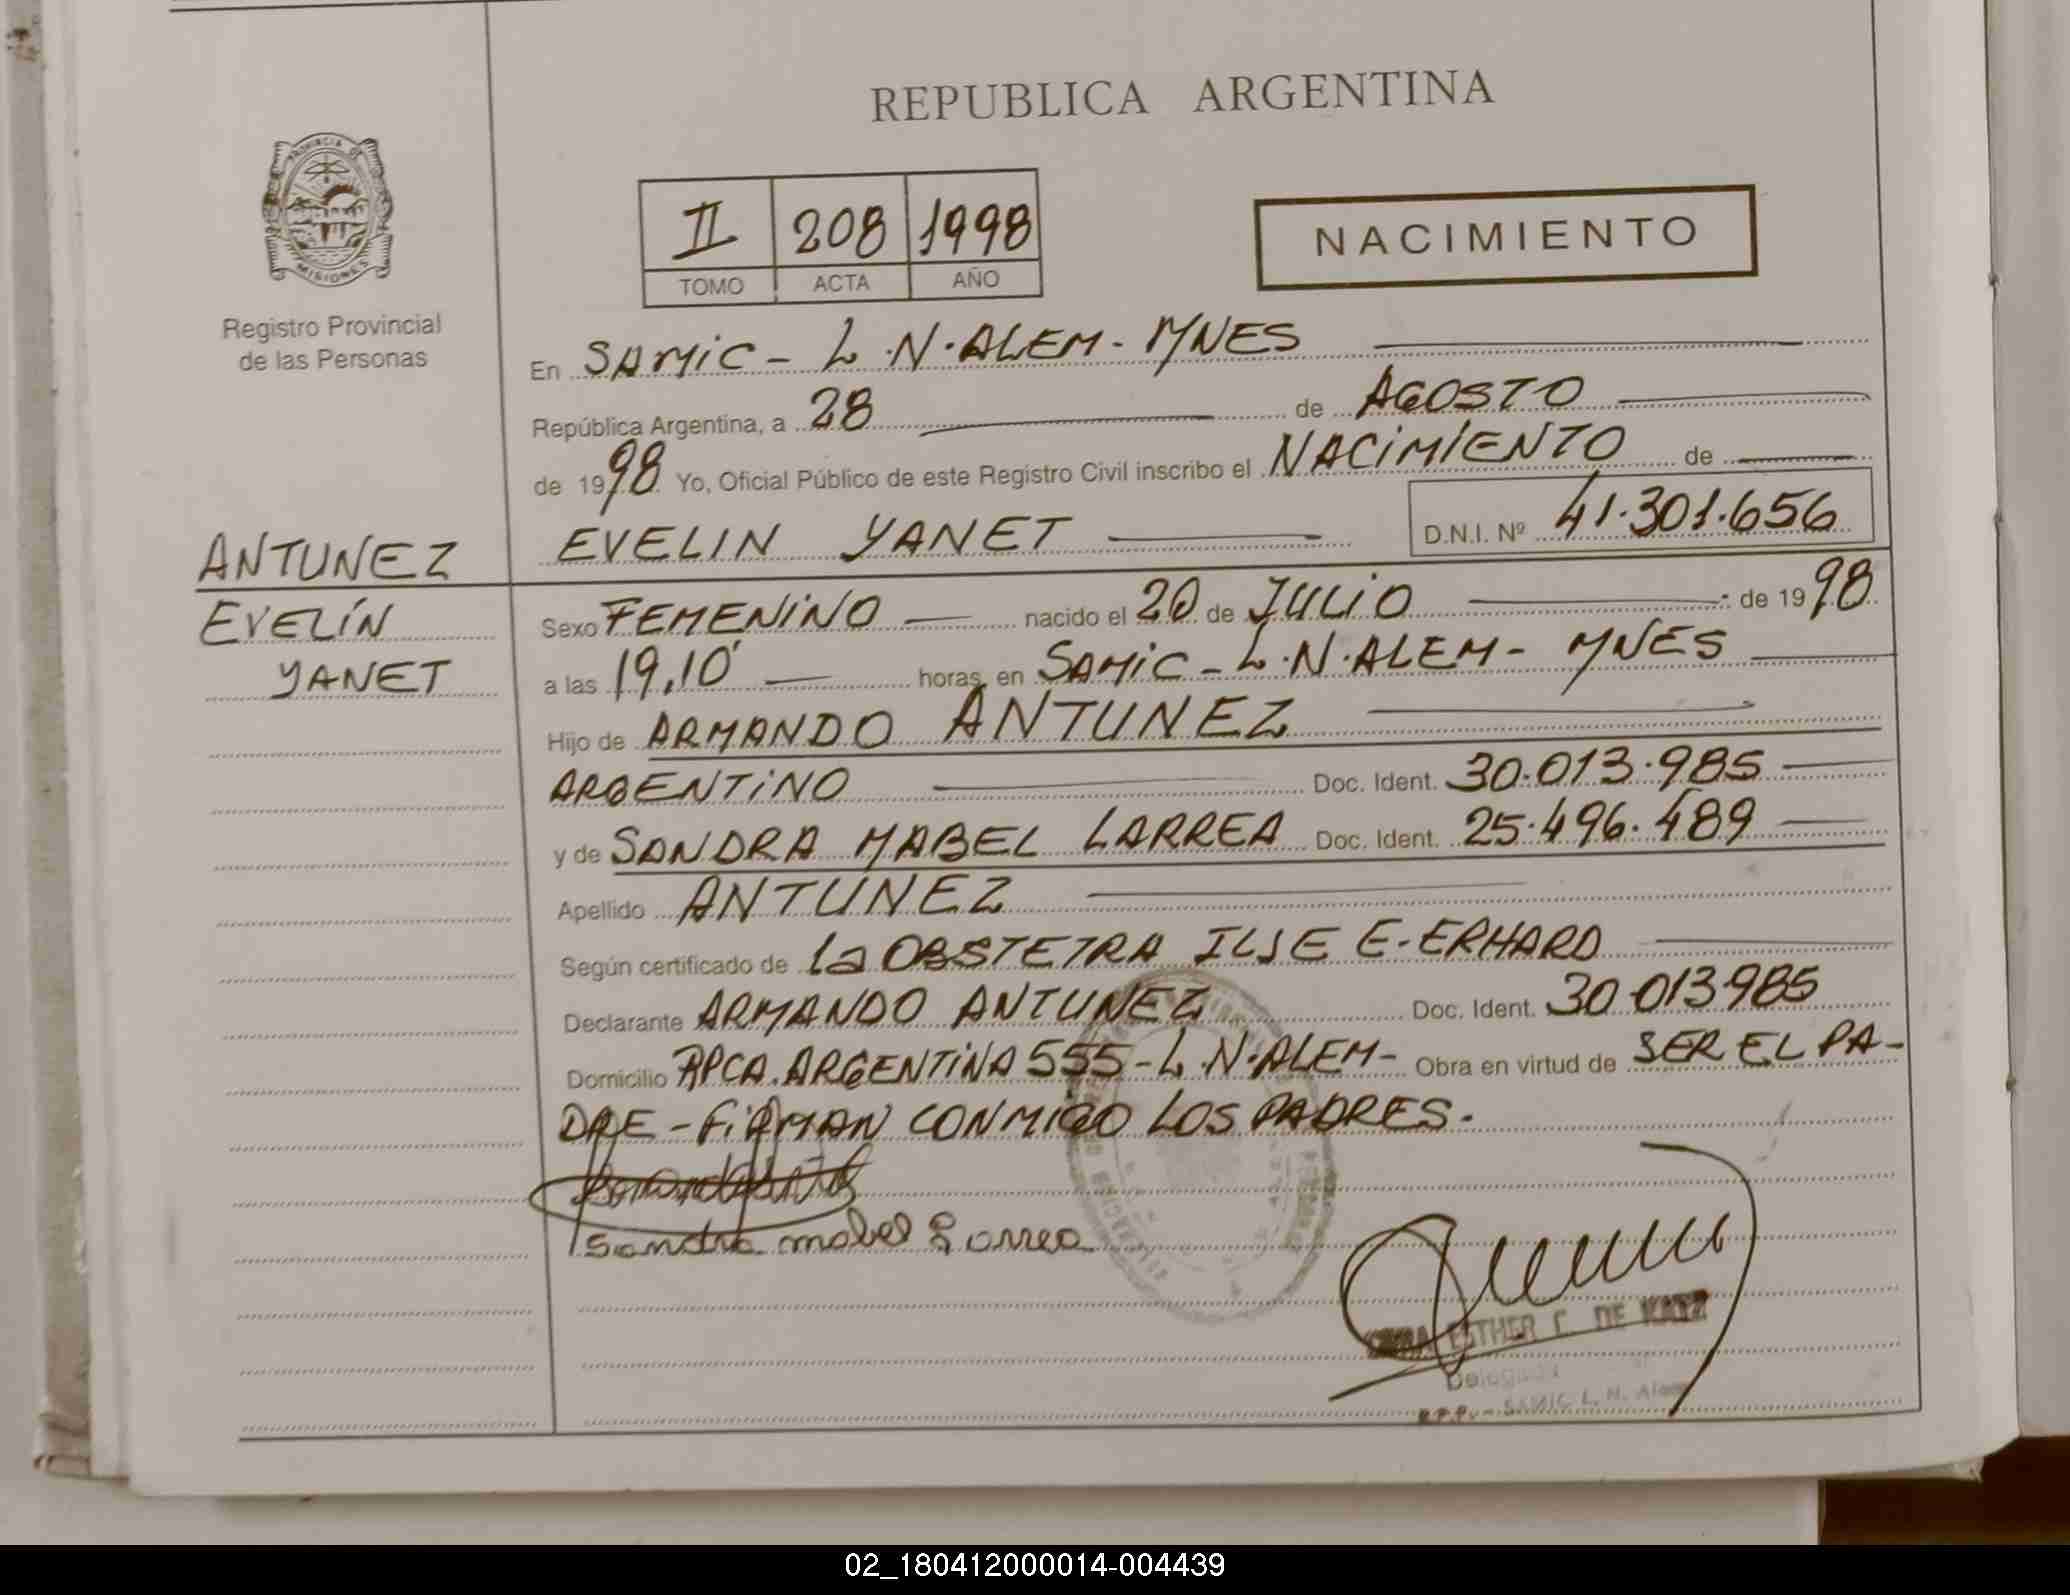 REPUBLICA ARGENTINA
PROVINCIA DE
MISIONES
Registro Provincial
de las Personas
II 208 1998
TOMO ACTA AÑO
NACIMIENTO
En SAMIC - L.N.ALEM - MNES
República Argentina, a 28 de AGOSTO
de 1998 Yo, Oficial Público de este Registro Civil inscribo el NACIMIENTO de
ANTUNEZ
EVELÍN
YANET
EVELIN YANET
D.N.I. Nº 41.301.656
Sexo FEMENINO nacido el 20 de JULIO de 1998
a las 19,10 horas, en SAMIC - L.N.ALEM - MNES
Hijo de ARMANDO ANTUNEZ
ARGENTINO Doc. Ident. 30.013.985
y de SANDRA MABEL LARREA Doc. Ident. 25.496.489
Apellido ANTUNEZ
Según certificado de la OBSTETRA ILSE E. ERHARD
Declarante ARMANDO ANTUNEZ Doc. Ident. 30.013985
Domicilio RPCA. ARGENTINA 555 - L.N.ALEM - Obra en virtud de SER EL PA-
DRE - FIRMAN CONMIGO LOS PADRES.
Sandra mabel Larrea
ESTHER C. DE KATZ
Delegada
R.P.P. - SAMIC L. N. Alem
02_180412000014-004439